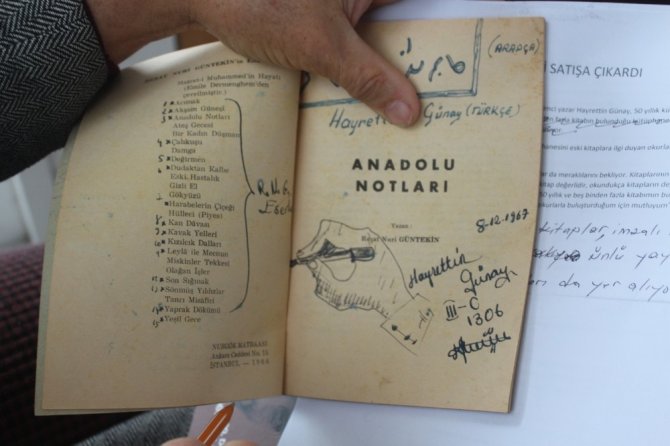 REŞAT NURİ GÜNTEKİN'in
Hazret-i Muhammed'in Hayatı
(Emile Dermenghem'den
çevrilmiştir.)
1 Acımak
2 Akşam Güneşi
3 Anadolu Notları
Ateş Gecesi
Bir Kadın Düşmanı
4 Çalıkuşu
Damga
5 Değirmen
6 Dudaktan Kalbe
Eski Hastalık
Gizli El
Gökyüzü
Harabelerin Çiçeği
Hülleci (Piyes)
8 Kan Dâvası
7 Kavak Yelleri
Kızılcık Dalları
9 Leylâ ile Mecnun
Miskinler Tekkesi
Olağan İşler
Son Sığınak
Sönmüş Yıldızlar
Tanrı Misafiri
Yaprak Dökümü
Yeşil Gece
R. N. G.
NURGÖK MATBAASI
Ankara Caddesi No.
İSTANBUL — 1966
(ARAPÇA)
Hayrettin Günay (TÜRKÇE)
ANADOLU
NOTLARI
Yazan :
Reşat Nuri GÜNTEKİN
8-12-1967
Hayrettin
Günay
III-C
1306
SATIŞA ÇIKARDI
yazar Hayrettin Günay, 50 yıllık
fazla kitabın bulunduğu
hanesini eski kitaplara ilgi duyan okurlar
da meraklılarını bekliyor. Kitaplarının
kitap değerlidir, okundukça kitapların
yıllık ve bey binden fazla kitabımın
okurlarla buluşturduğum için mutluyum"
kitaplar, imzalı
ünlü
da yer alıyor